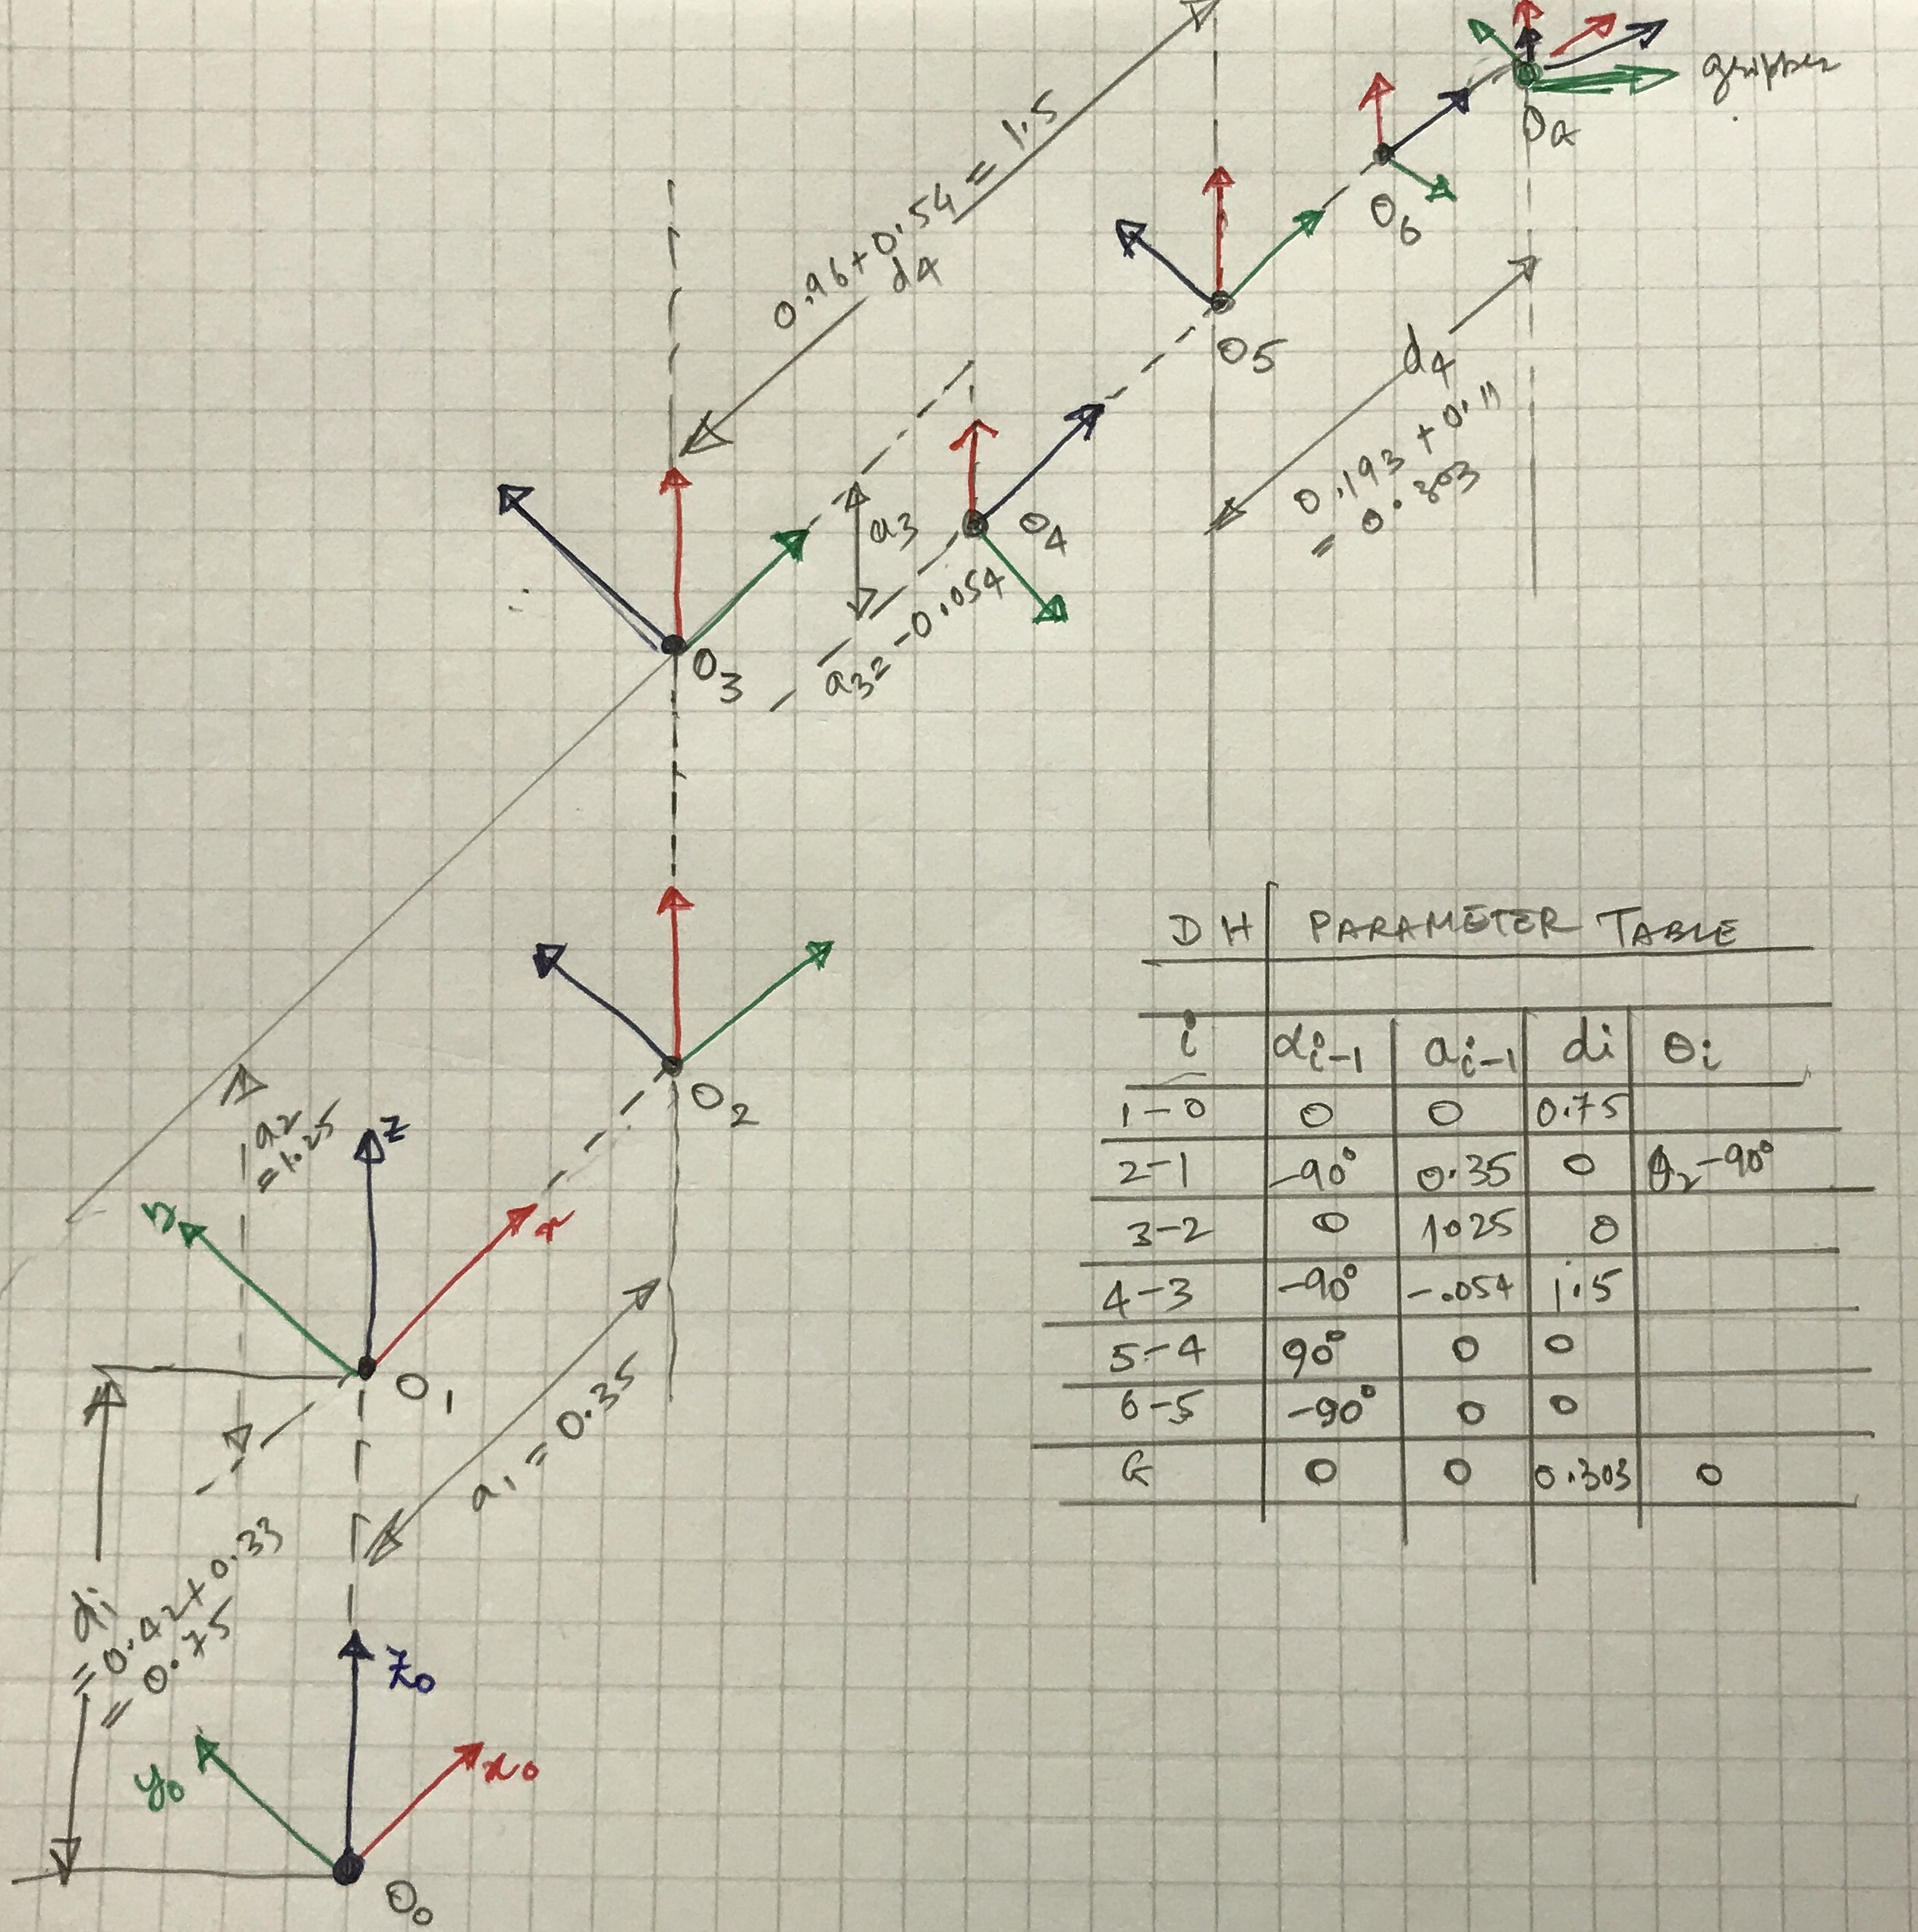 gripper
OG
O6
0.96+0.54 = 1.5
d4
O5
d4
0.193 + 0.11
= 0.303
a3
O4
a3= -0.054
O3
O2
a2
=1.25
z
x
O1
a1 = 0.35
d1
= 0.42+0.33
= 0.75
z0
y0
x0
O0
DH PARAMETER TABLE
i αi-1 ai-1 di θi
1-0 0 0 0.75
2-1 -90° 0.35 0 θ2-90°
3-2 0 1.25 0
4-3 -90° -.054 1.5
5-4 90° 0 0
6-5 -90° 0 0
G 0 0 0.303 0